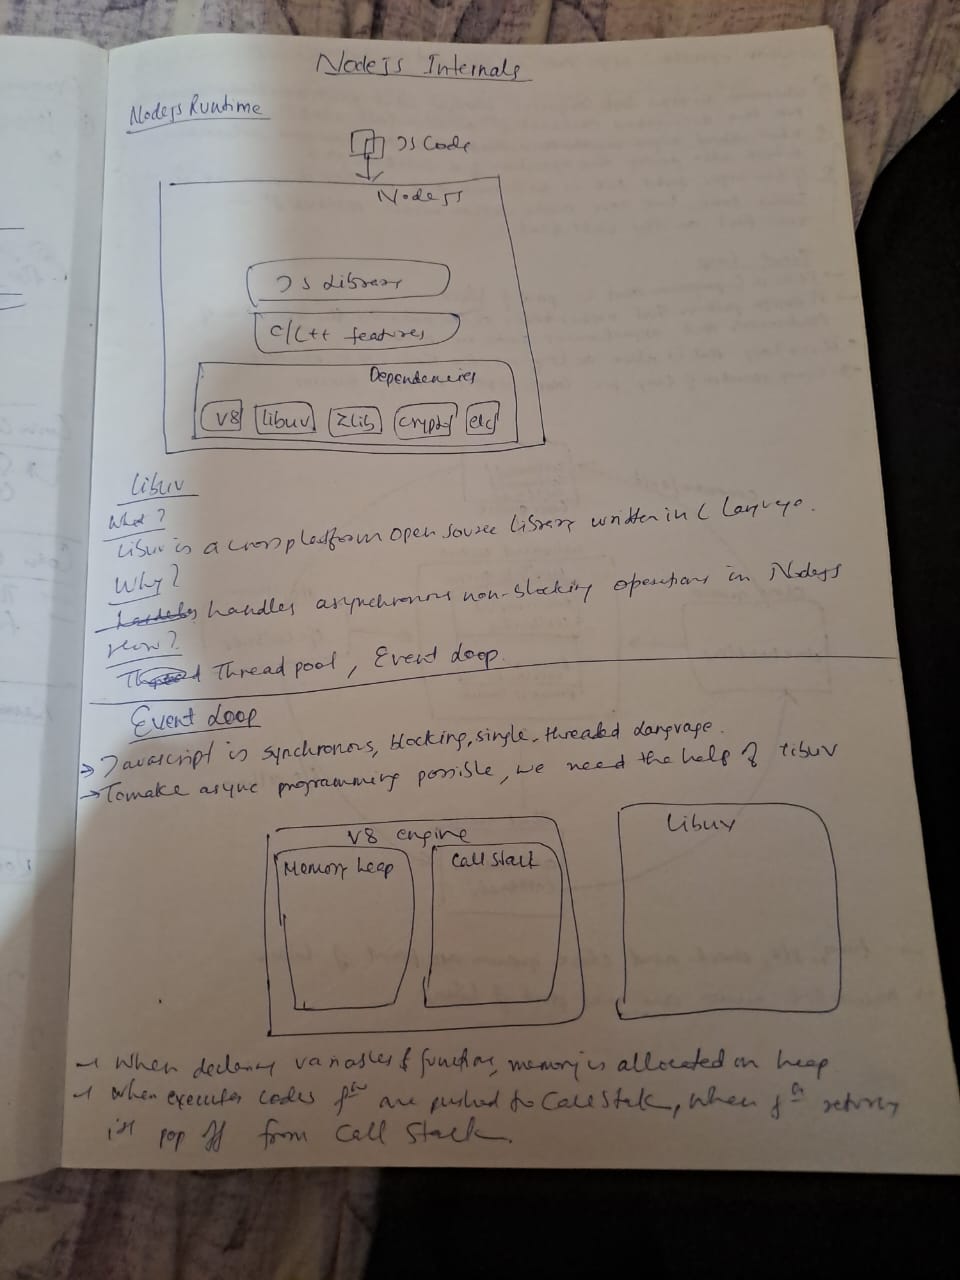 NodeJS Internals
Nodejs Runtime
JS Code
NodeJS
JS Library
C/C++ features
Dependencies
V8 libuv Zlib Crypto etc
Libuv
What?
Libuv is a cross platform open source library written in C Language.
Why?
handles asynchronous non-blocking operations in Nodejs
How?
Thread pool, Event Loop.
Event Loop
→ Javascript is synchronous, blocking, single-threaded Language.
→ To make async programming possible, we need the help of libuv
V8 engine
Memory heap
Call Stack
Libuv
When declaring variables & function, memory is allocated on heap
When executes codes fⁿ are pushed to Call Stack, when fⁿ returns
it's pop off from Call Stack.